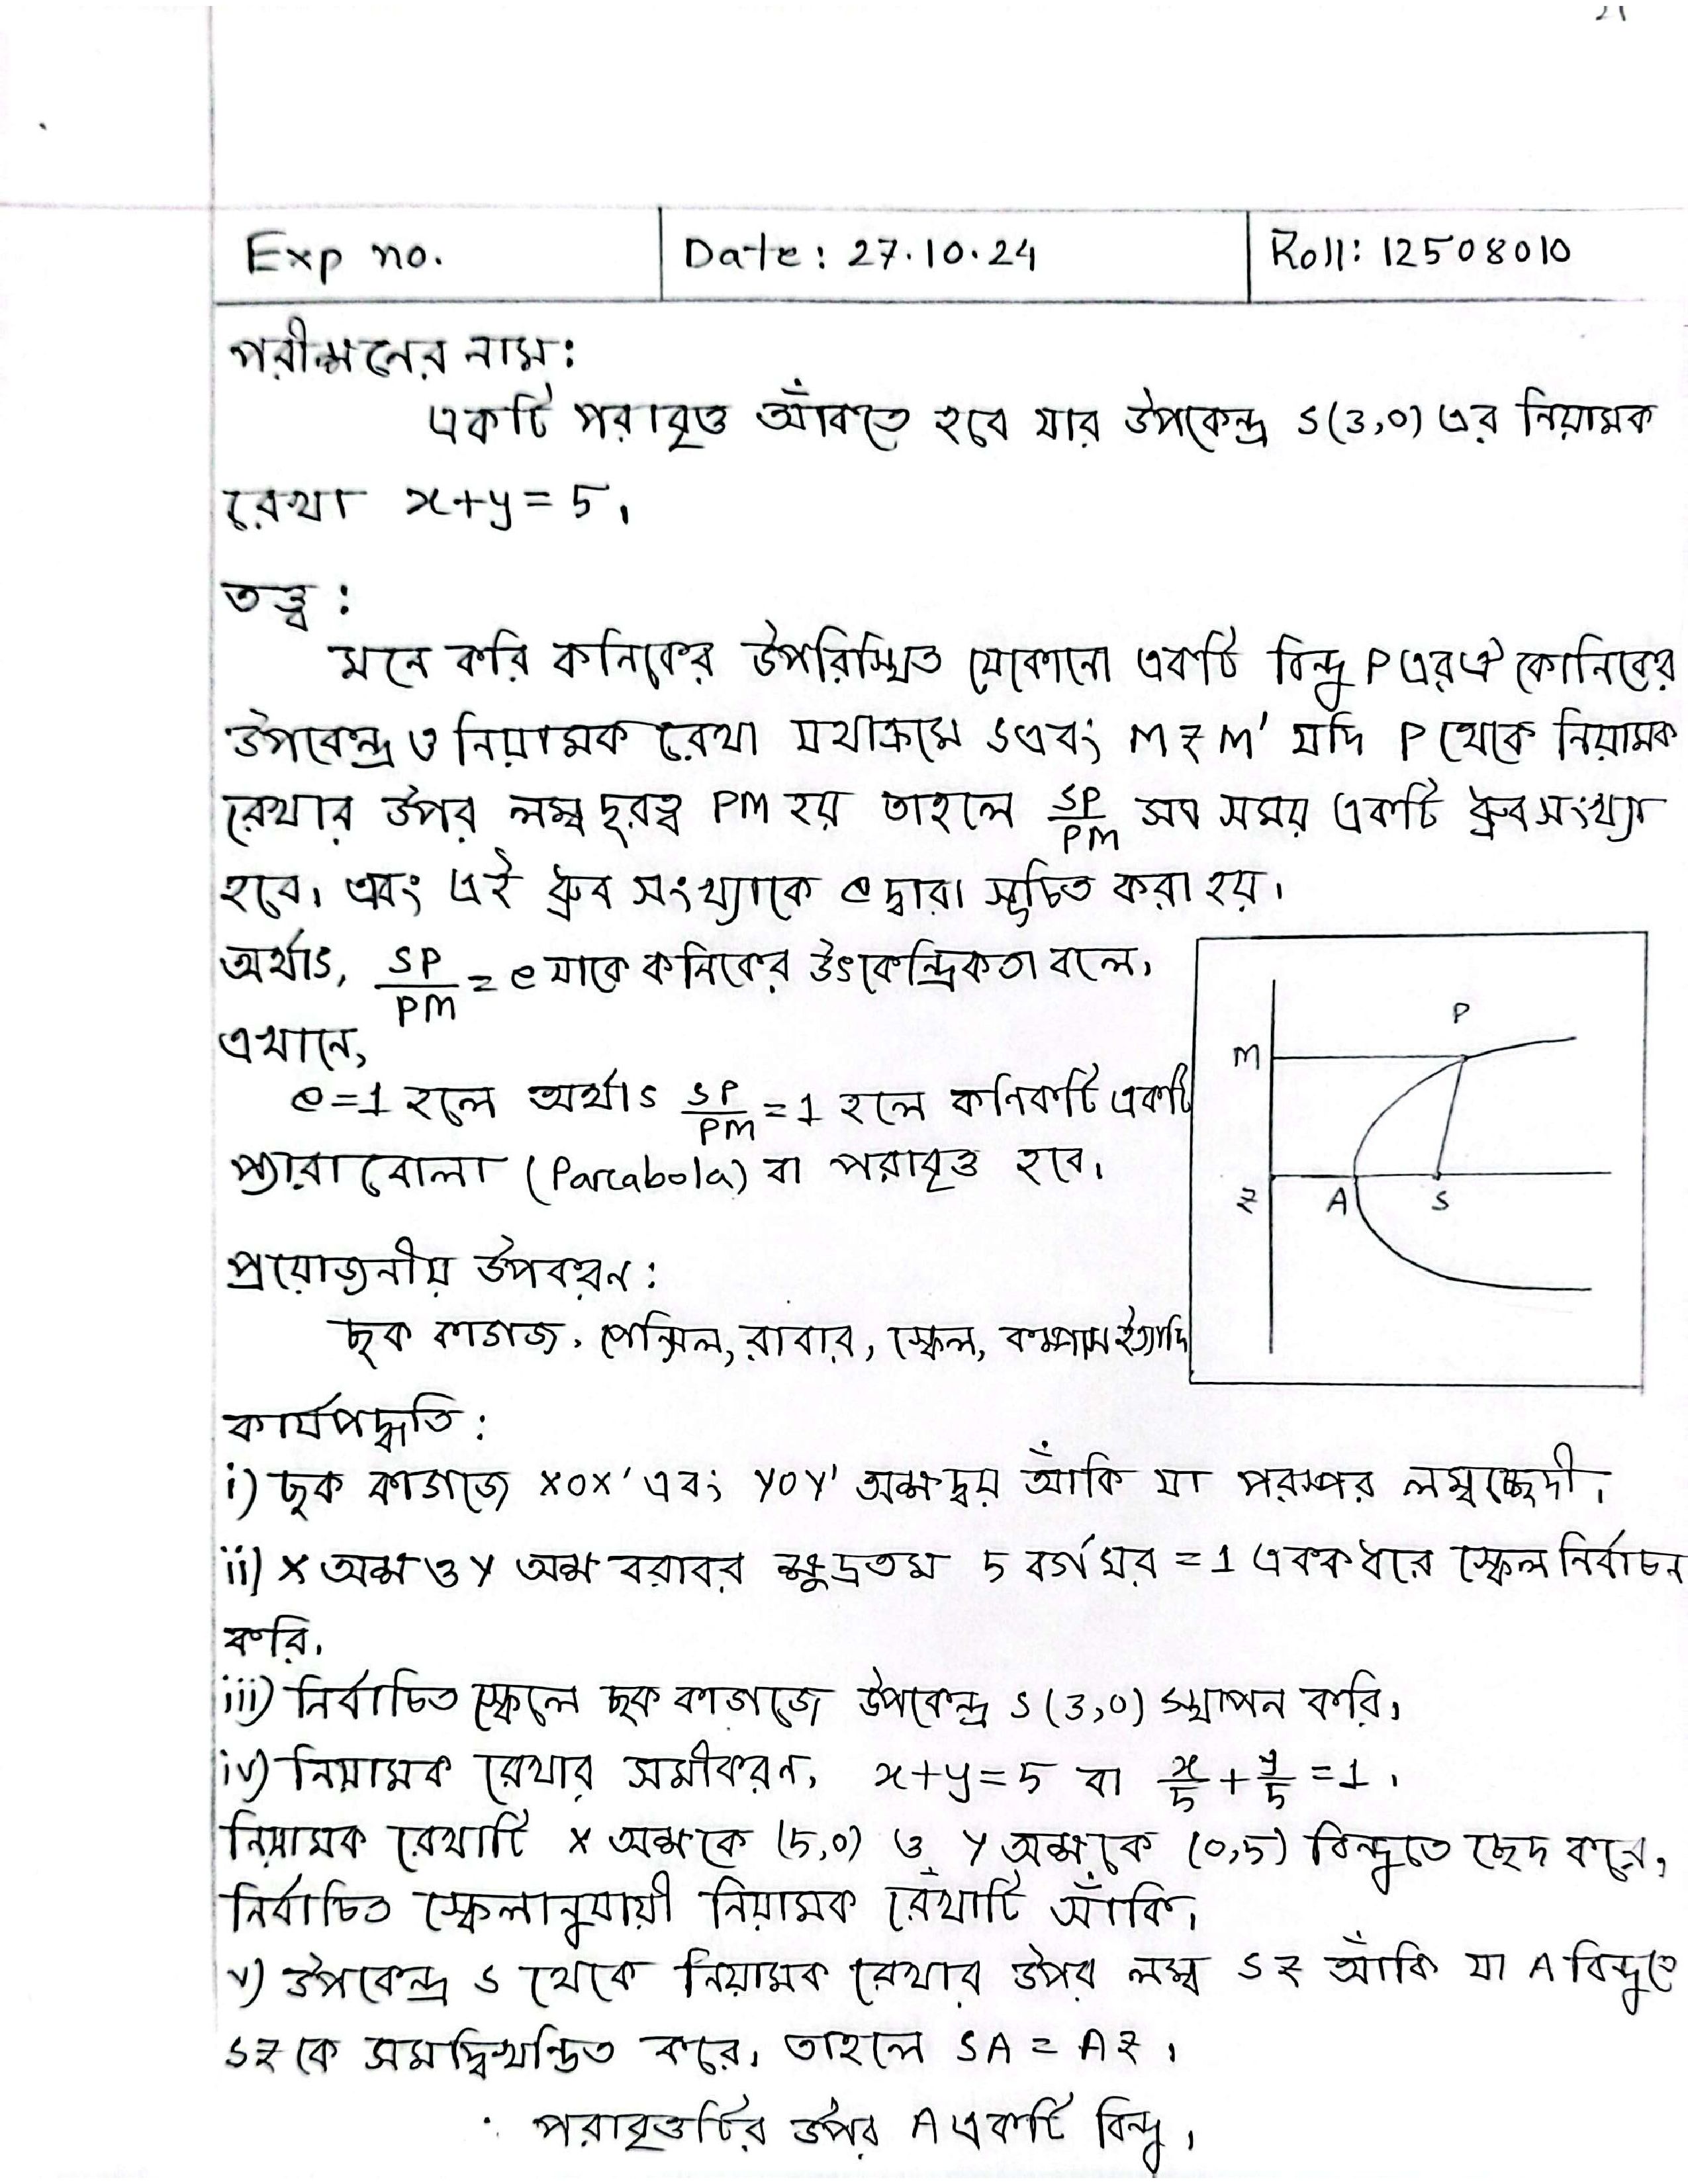 Exp no.
Date: 27.10.24
Roll: 12508010
পরীক্ষনের নাম:
একটি পরাবৃত্ত আঁকতে হবে যার উপকেন্দ্র S(3,0) এর নিয়ামক
রেখা x+y=5।
তত্ত্ব:
মনে করি কনিকের উপরিস্থিত যেকোনো একটি বিন্দু P এর ঐ কোনিকের
উপকেন্দ্র ও নিয়ামক রেখা যথাক্রমে S এবং MZM' যদি P থেকে নিয়ামক
রেখার উপর লম্ব দূরত্ব PM হয় তাহলে SP/PM সব সময় একটি ধ্রুব সংখ্যা
হবে। এবং এই ধ্রুব সংখ্যাকে e দ্বারা সূচিত করা হয়।
অর্থাৎ, SP/PM = e যাকে কনিকের উৎকেন্দ্রিকতা বলে।
এখানে,
e=1 হলে অর্থাৎ SP/PM = 1 হলে কনিকটি একটি
প্যারাবোলা (Parabola) বা পরাবৃত্ত হবে।
M
P
Z
A
S
প্রয়োজনীয় উপকরন:
ছক কাগজ, পেন্সিল, রাবার, স্কেল, কম্পাস ইত্যাদি
কার্যপদ্ধতি:
i) ছক কাগজে XOX' এবং YOY' অক্ষদ্বয় আঁকি যা পরস্পর লম্বচ্ছেদী।
ii) X অক্ষ ও Y অক্ষ বরাবর ক্ষুদ্রতম 5 বর্গ ঘর = 1 একক ধরে স্কেল নির্বাচন
করি।
iii) নির্বাচিত স্কেলে ছক কাগজে উপকেন্দ্র S(3,0) স্থাপন করি।
iv) নিয়ামক রেখার সমীকরন, x+y=5 বা x/5 + y/5 = 1।
নিয়ামক রেখাটি X অক্ষকে (5,0) ও Y অক্ষকে (0,5) বিন্দুতে ছেদ করে,
নির্বাচিত স্কেলানুযায়ী নিয়ামক রেখাটি আঁকি।
v) উপকেন্দ্র S থেকে নিয়ামক রেখার উপর লম্ব SZ আঁকি যা A বিন্দুতে
SZ কে সমদ্বিখন্ডিত করে। তাহলে SA = AZ।
পরাবৃত্তটির উপর A একটি বিন্দু।